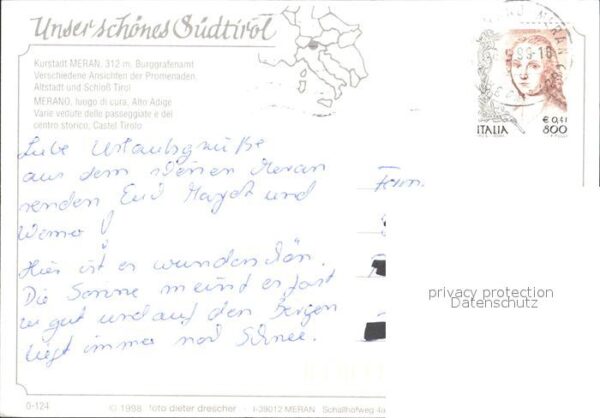 Unser schönes Südtirol
Kurstadt MERAN, 312 m, Burggrafenamt
Verschiedene Ansichten der Promenaden,
Altstadt und Schloß Tirol
MERANO, luogo di cura, Alto Adige
Varie vedute delle passeggiate e del
centro storico, Castel Tirolo
MERAN
ITALIA
€ 0,41
800
Liebe Urlaubsgrüße
aus dem schönen Meran
senden Euch und
Hier ist es wunderschön.
Die Sonne meint es fast
zu gut und auf den Bergen
liegt immer noch Schnee.
Fam.
privacy protection
Datenschutz
0-124
© 1998 foto dieter drescher - I-39012 MERAN Schallhofweg 4a